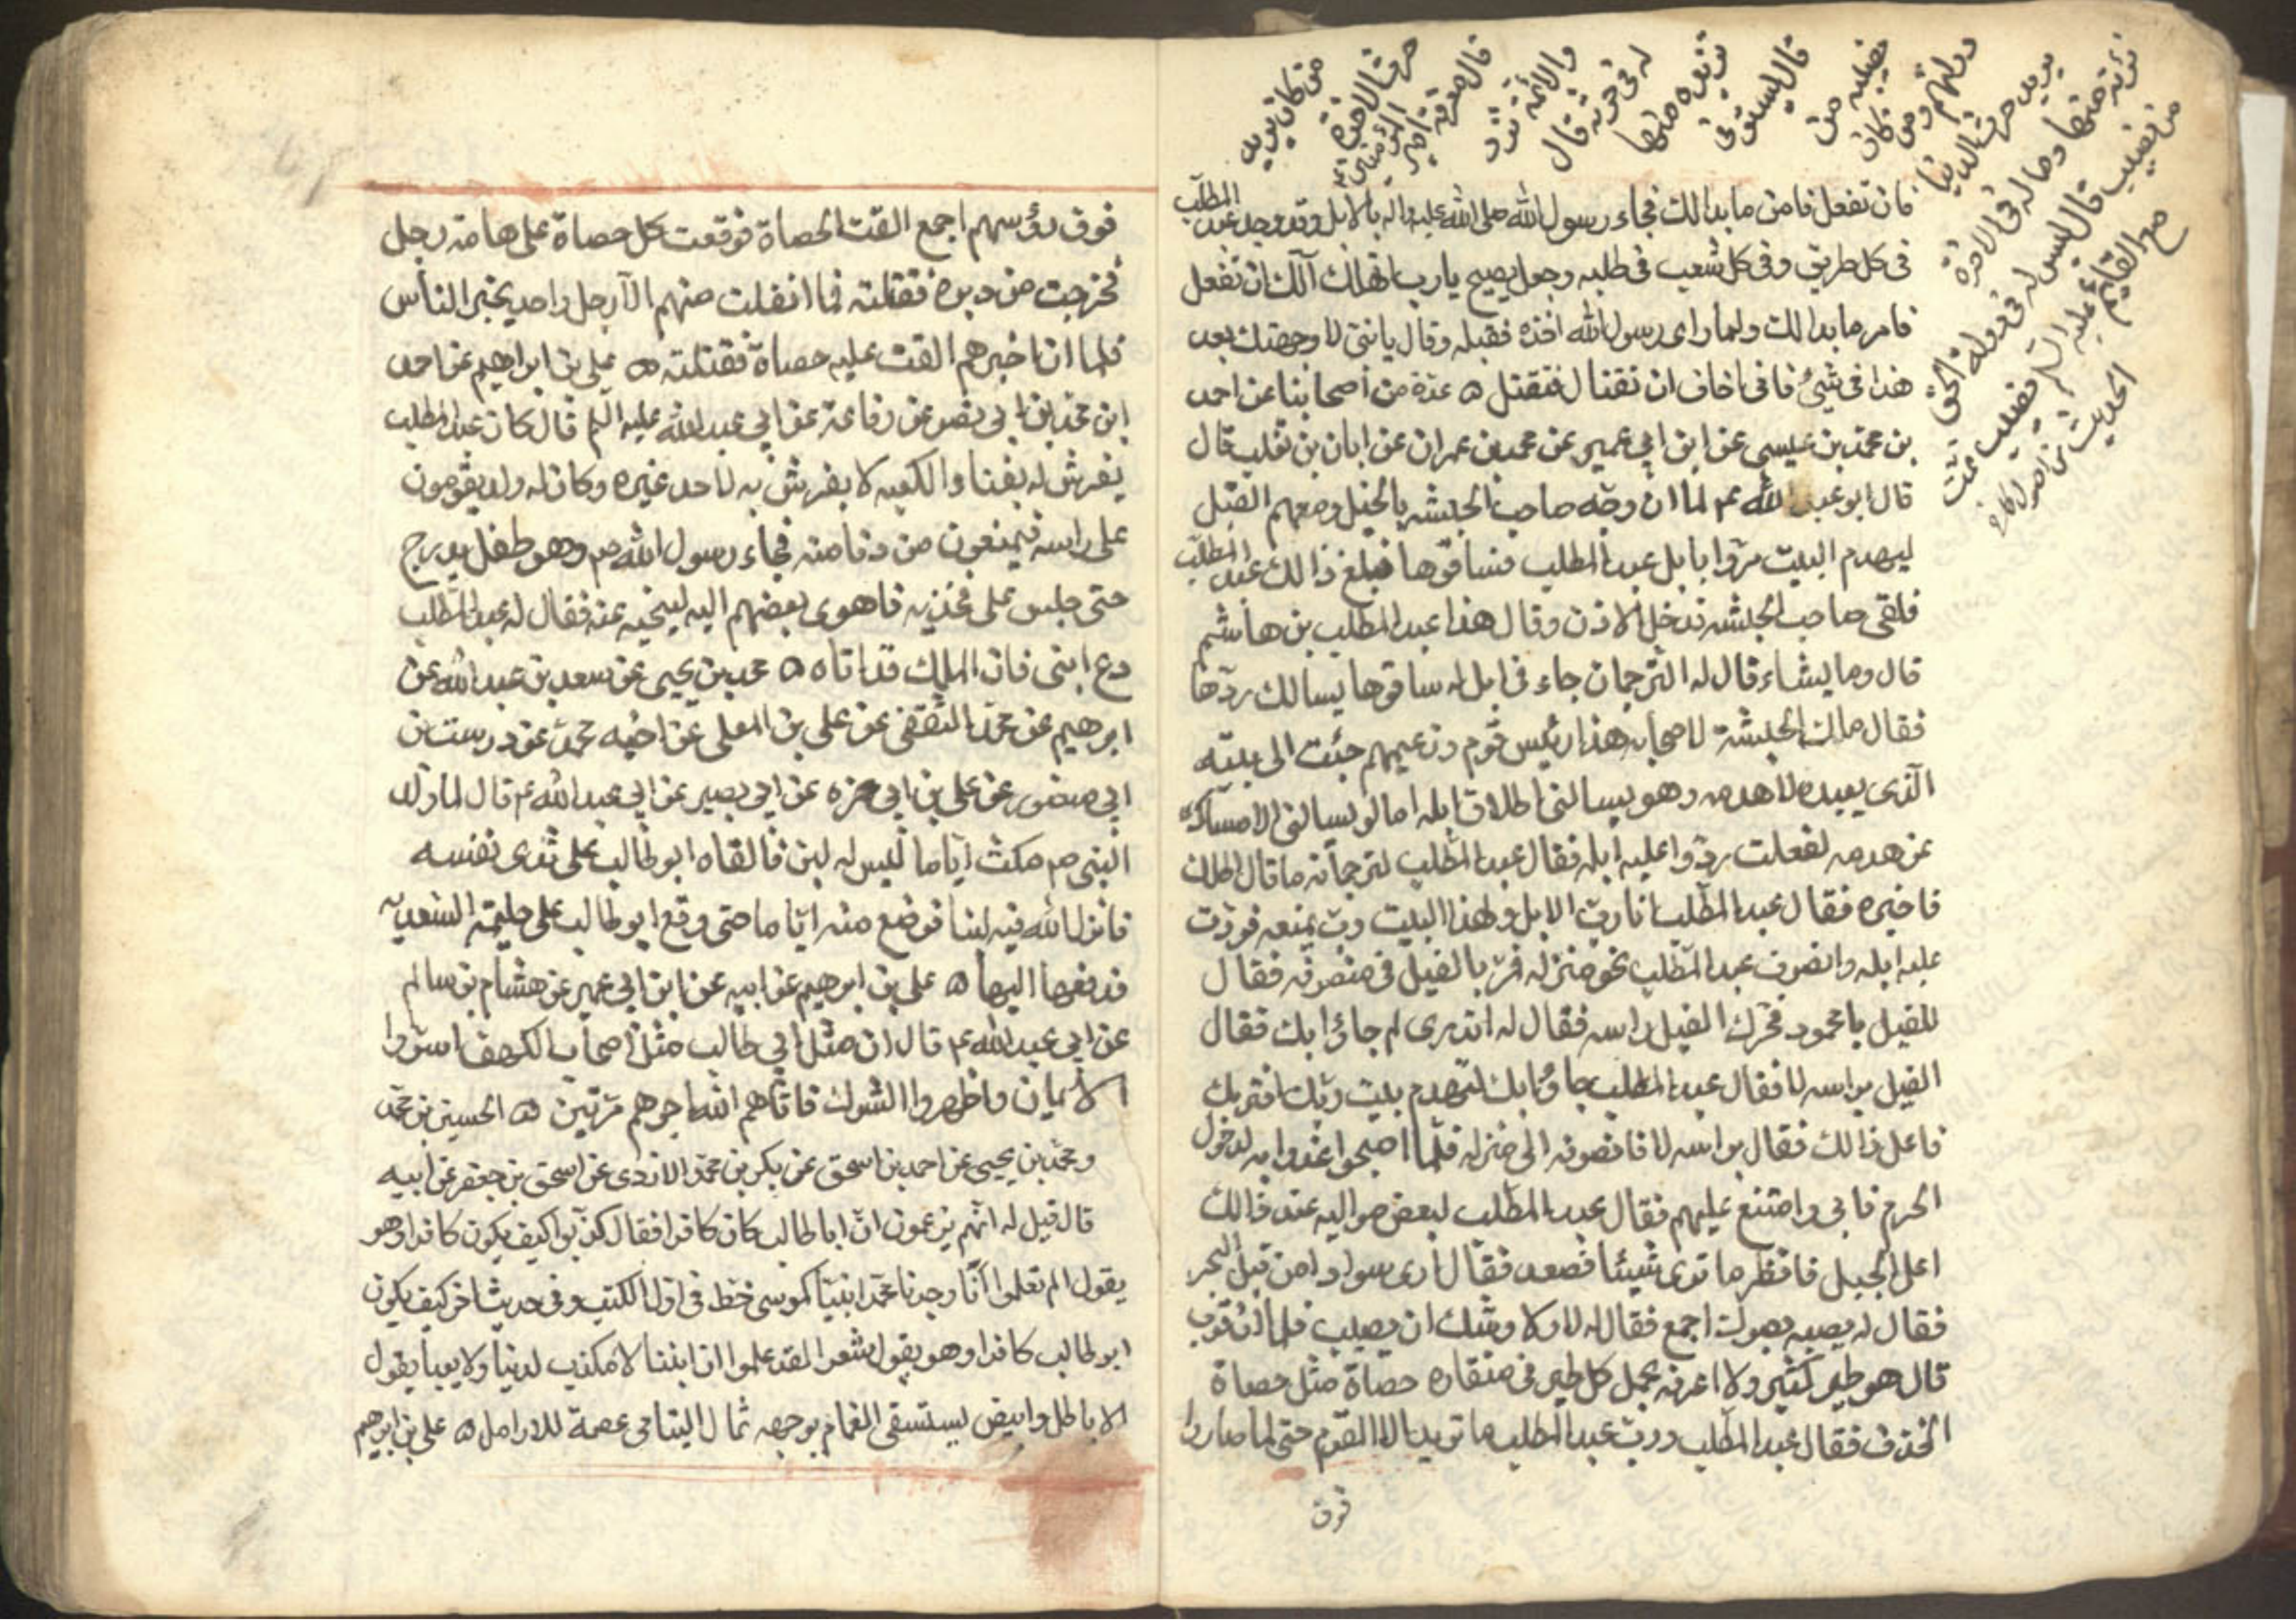 من كان يريد
حرث الاخرة
قال معرفة امير
المؤمنين عم
والائمة نزد
له في حرثه قال
نزيده منها
قال يستوفي
نصيبه من
دولتهم ومن كان
يريد حرث الدنيا
نؤته منها وما له في الاخرة
من نصيب قال ليس له في دولة الحق
مع القائم عليه السلم نصيب تمت
الحديث من اصول كافي
فان تفعل فامر ما بدا لك فجاء رسول الله صلى الله عليه واله بالابل وقد وجه عبد المطلب
في كل طريق وفي كل شعب في طلبه وجعل يصيح يا رب اتهلك آلك ان تفعل
فامر ما بدا لك ولما راى رسول الله اخذه فقبله وقال يا بني لا وجهتك بعد
هذا في شيئ فاني اخاف ان تغتال فتقتل ه عدة من اصحابنا عن احمد
بن محمد بن عيسى عن ابن ابي عمير عن محمد بن عمران عن ابان بن تغلب قال
قال ابو عبد الله عم لما ان وجه صاحب الحبشه بالخيل ومعهم الفيل
ليهدم البيت مروا بابل عبد المطلب فساقوها فبلغ ذالك عبد المطلب
فاتى صاحب الحبشه فدخل الاذن وقال هذا عبد المطلب بن هاشم
قال وما يشاء قال له الترجمان جاء في ابل له ساقوها يسالك ردها
فقال مالك الحبشة لاصحابه هذا رئيس قوم وزعيمهم جئت الى بيته
الذى يعبده لاهدمه وهو يسالني اطلاق ابله اما لو يسالني الامساك
عن هدمه لفعلت ردوا عليه ابله فقال عبد المطلب لترجمانه ما قال الملك
فاخبره فقال عبد المطلب انا رب الابل ولهذا البيت رب يمنعه فردت
عليه ابله وانصرف عبد المطلب نحو منزله فمر بالفيل في منصرفه فقال
للفيل يا محمود فحرك الفيل راسه فقال له اتدرى لم جاؤا بك فقال
الفيل براسه لا فقال عبد المطلب جاؤا بك لتهدم بيت ربك افتريك
فاعل ذالك فقال براسه لا فانصرف الى منزله فلما اصبحوا غدوا به لدخول
الحرم فابى وامتنع عليهم فقال عبد المطلب لبعض مواليه عند ذالك
اعل الجبل فانظر ما ترى شيئا فصعد فقال ارى سوادا من قبل البحر
فقال له يصيبه بصرك اجمع فقال له لا ولا وشك ان يصيب فلما ان قرب
قال هو طير كثير ولا اعرفه يحمل كل طير في منقاره حصاة مثل حصاة
الخذف فقال عبد المطلب ورب عبد المطلب ما تريد الا القوم حتى لما صاروا
فوق
فوق رؤسهم اجمع القت الحصاة فوقعت كل حصاة على هامة رجل
فخرجت من دبره فقتلته فما انفلت منهم الا رجل واحد يخبر الناس
فلما ان اخبرهم القت عليه حصاة فقتلته ه على بن ابراهيم عن احمد
ابن محمد بن ابي نصر عن رفاعة عن ابي عبد الله عليه السلم قال كان عبد المطلب
يفرش له بفناء الكعبه لا يفرش به لاحد غيره وكان له ولد يقومون
على راسه فيمنعون من دنا منه فجاء رسول الله ص وهو طفل يدرج
حتى جلس على فخذيه فاهوى بعضهم اليه لينحيه عنه فقال له عبد المطلب
دع ابنى فان الملك قد اتاه ه محمد بن يحيى عن سعد بن عبد الله عن
ابرهيم عن محمد الثقفى عن على بن المعلى عن اخيه محمد عن درست بن
ابي منصور عن على بن ابي حمزه عن ابي بصير عن ابي عبد الله عم قال لما ولد
النبي ص مكث اياما ليس له لبن فالقاه ابو طالب على ثدى نفسه
فانزل الله فيه لبنا فرضع منه اياما حتى وقع ابو طالب على حليمة السعديه
فدفعها اليها ه على بن ابرهيم عن ابيه عن ابن ابي عمير عن هشام بن سالم
عن ابي عبد الله عم قال ان مثل ابي طالب مثل اصحاب الكهف اسروا
الايمان واظهروا الشرك فاتاهم الله اجرهم مرتين ه الحسين بن محمد
ومحمد بن يحيى عن احمد بن اسحق عن بكر بن محمد الازدى عن اسحق بن جعفر عن ابيه
قال قيل له انهم يزعمون ان ابا طالب كان كافرا فقال كذبوا كيف يكون كافرا وهو
يقول الم تعلموا انا وجدنا محمدا نبيا كموسى خط في اول الكتب وفي حديث اخر كيف يكون
ابو طالب كافرا وهو يقول شعر لقد علموا ان ابننا لا مكذب لدينا ولا يعبا بقول
الاباطل وابيض يستسقى الغمام بوجهه ثمال اليتامى عصمة للارامل ه على بن ابرهيم